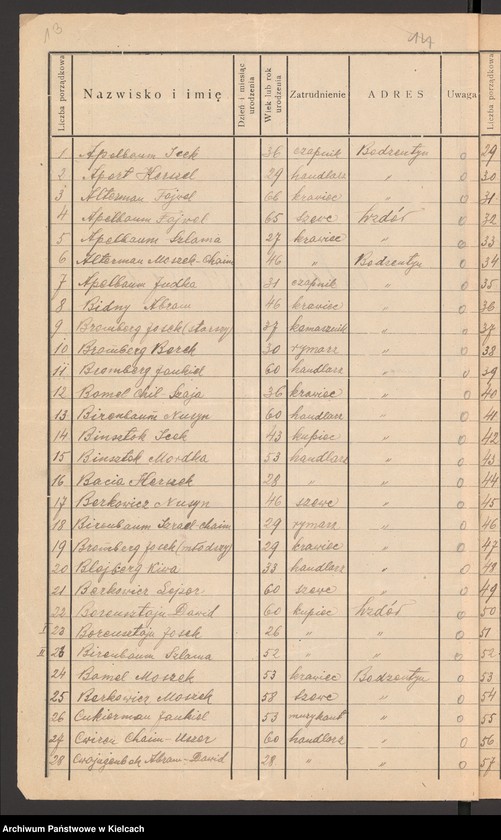 13
Liczba porządkowa Nazwisko i imię Dzień i miesiąc urodzenia Wiek lub rok urodzenia Zatrudnienie ADRES Uwaga Liczba porządkowa
1 Apelbaum Icek 36 czapnik Bodzentyn 0 29
2 Apert Herszel 29 handlarz " 0 30
3 Alterman Fajwel 66 krawiec " 0 31
4 Apelbaum Fajwel 65 szewc Wzdół 0 32
5 Apelbaum Szlama 27 krawiec " 0 33
6 Alterman Moszek-Chaim 46 " Bodzentyn 0 34
7 Apelbaum Judka 31 czapnik " 0 35
8 Bidny Abram 46 krawiec " 0 36
9 Bromberg Josek (starszy) 37 " 0 37
10 Bromberg Berek 30 rymarz " 0 38
11 Bromberg Jankiel 60 handlarz " 0 39
12 Bamel Chil-Szaja 36 krawiec " 0 40
13 Birenbaum Nusyn 60 handlarz " 0 41
14 Binsztok Icek 43 kupiec " 0 42
15 Binsztok Mordka 53 handlarz " 0 43
16 Bacia Herszek 28 " " 0 44
17 Berkowicz Nusyn 46 szewc " 0 45
18 Birenbaum Izrael-Chaim 29 rymarz " 0 46
19 Bromberg Josek (młodszy) 29 krawiec " 0 47
20 Blajberg Kiwa 33 handlarz " 0 48
21 Berkowicz 60 szewc " 0 49
22 Borensztajn Dawid 60 kupiec Wzdół 0 50
I 23 Borensztajn Josek 26 " " 0 51
II 23 Birenbaum Szlama 52 " " 0 52
24 Bamel Moszek 53 krawiec Bodzentyn 0 53
25 Berkowicz Moszek 58 szewc " 0 54
26 Cukierman Jankiel 53 muzykant " 0 55
27 Chaim-Uszer 60 handlarz " 0 56
28 Abram-Dawid 28 " " 0 57
Archiwum Państwowe w Kielcach